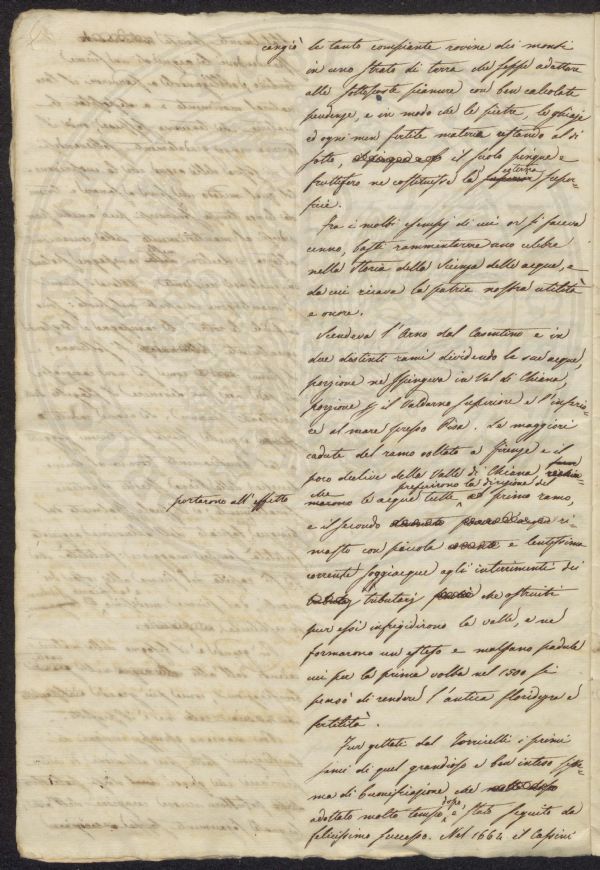 cangiò le tante compiante rovine dei monti
in uno strato di terra che seppe adattare
alle sottoposte pianure con ben calcolate
pendenze, e in modo che le pietre, le ghiaje
ed ogni men fertile materia restando al di
sotto, il suolo pingue e
fruttifero ne costituisse la esterna super-
ficie.
Fra i molti esempj di cui or si faceva
cenno, basti rammentarne uno celebre
nella storia della Scienza delle acque, e
da cui ricava la patria nostra utilità
e onore.
Scendeva l'Arno dal Casentino e in
due distinti rami dividendo le sue acque,
porzione ne spingeva in Val di Chiana,
porzione p il Valdarno superiore e l'inferio-
re al mare presso Pisa. Le maggiori
cadute del ramo voltato a Firenze e il
poco declive della Valle di Chiana
preferirono la direzione del
portarono all'effetto che
le acque tutte primo ramo,
e il secondo ri-
masto con piccola e lentissima
corrente soggiacque agli interrimenti dei
tributarj che ostruiti
pur essi infrigidirono la valle, e ne
formarono un esteso e malsano padule
cui per la prima volta nel 1500 si
pensò di rendere l'antica floridezza e
fertilità.
Fur gettati dal Torricelli i primi
semi di quel grandioso e ben inteso siste-
ma di bonificazione che
adottato molto tempo dopo, è stato seguito da
felicissimo successo. Nel 1664 il Cassini